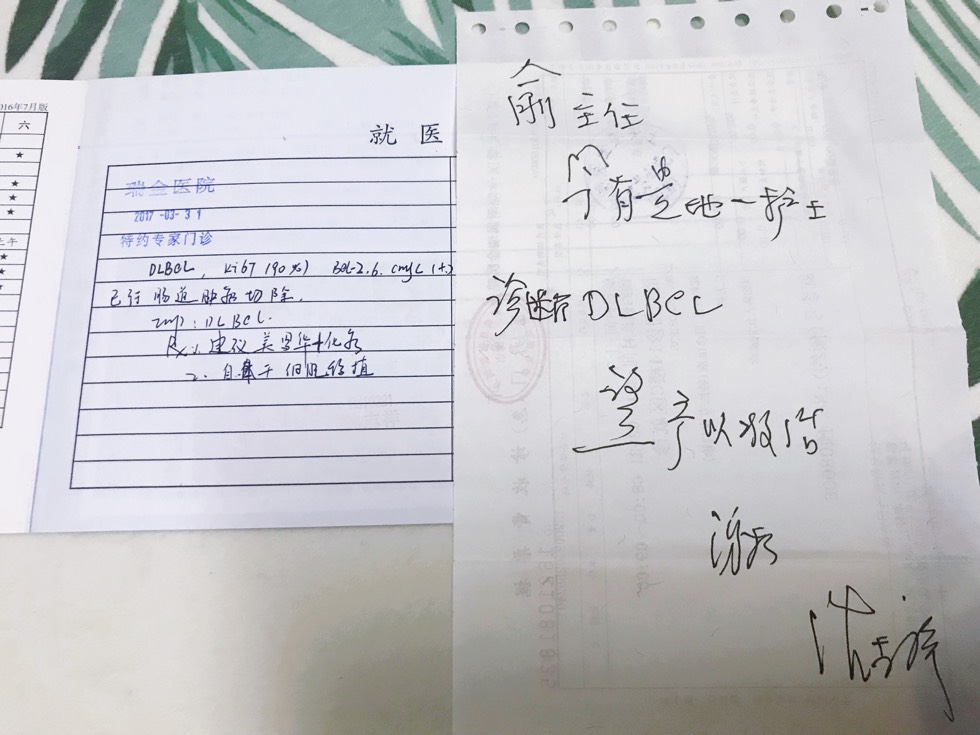 2016年7月版
六
上午
就 医
瑞金医院
2017 -03- 31
特约专家门诊
DLBCL, Ki67 (90%) Bcl-2.6. cmyc (+)
已行肠道肿瘤切除.
imp: DLBCL.
Rx: 建议美罗华+化疗
2. 自体干细胞移植
俞主任
今有 地一护士
诊断 DLBCL
望予以收治
谢谢
沈志祥